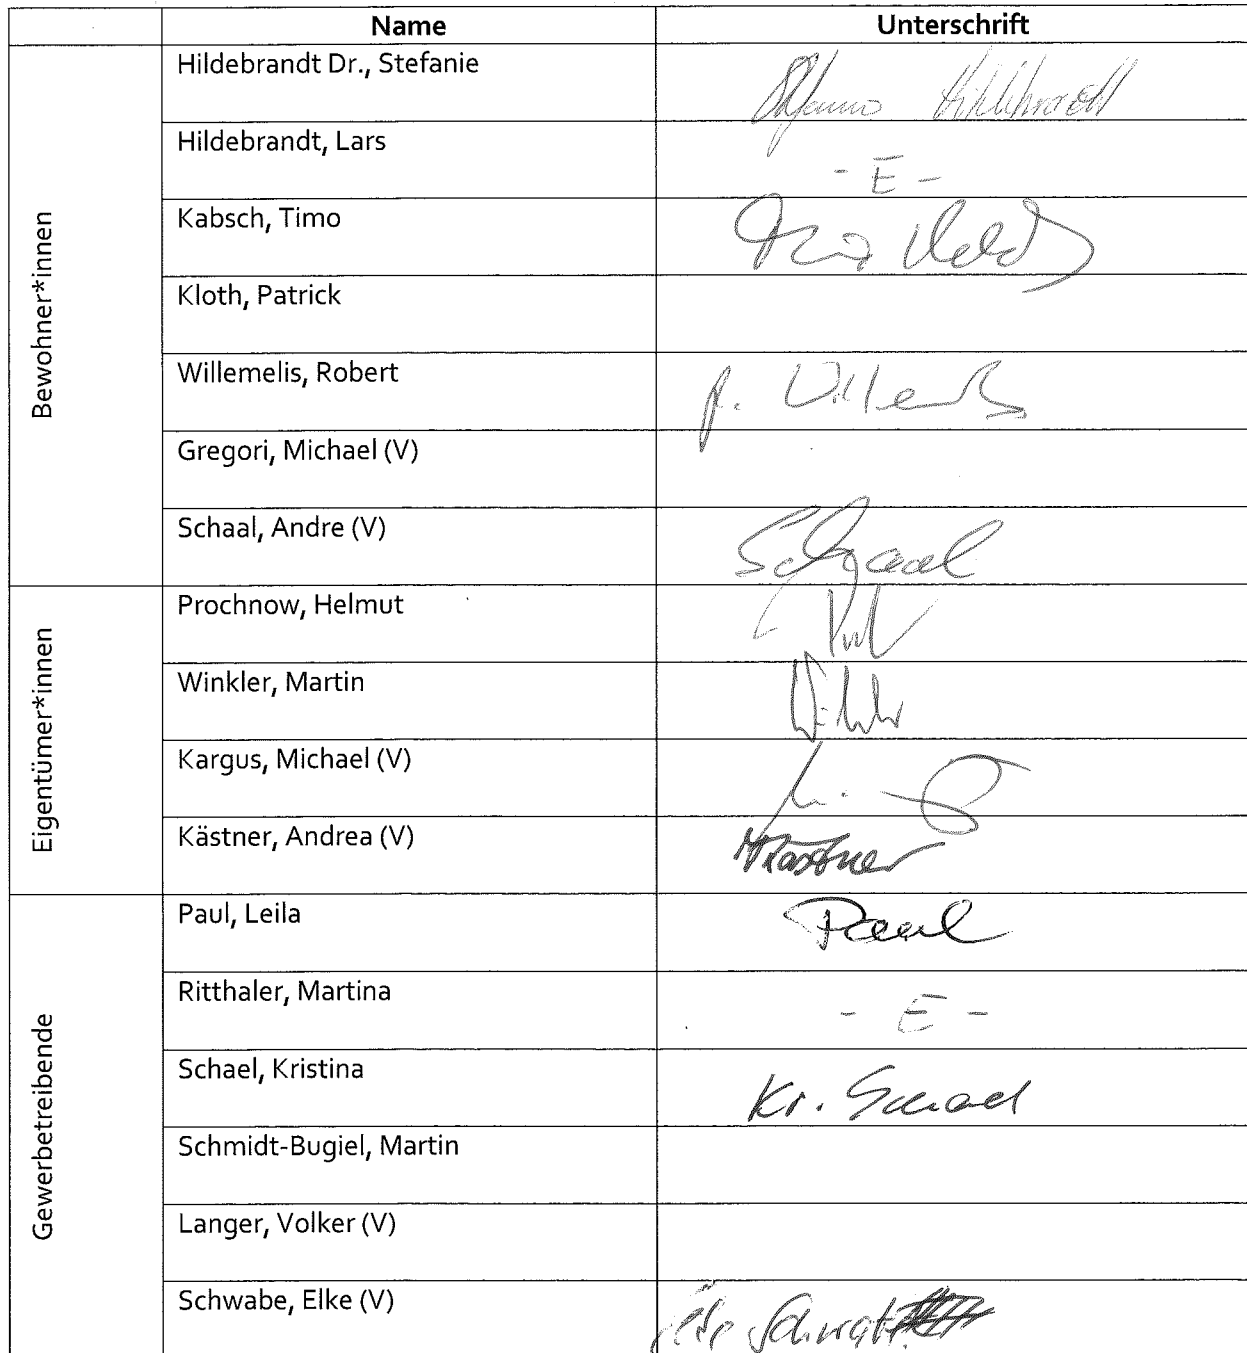 Name Unterschrift
Bewohner*innen
Hildebrandt Dr., Stefanie
Hildebrandt, Lars - E -
Kabsch, Timo
Kloth, Patrick
Willemelis, Robert
Gregori, Michael (V)
Schaal, Andre (V) Schaal
Eigentümer*innen
Prochnow, Helmut
Winkler, Martin
Kargus, Michael (V)
Kästner, Andrea (V) Kästner
Gewerbetreibende
Paul, Leila Paul
Ritthaler, Martina - E -
Schael, Kristina Kr. Schael
Schmidt-Bugiel, Martin
Langer, Volker (V)
Schwabe, Elke (V)